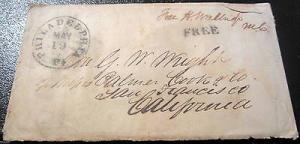 PHILADELPHIA
MAY
19
Free
M.C.
FREE
G. W. Wright
Palmer Cook & Co
San Francisco
California